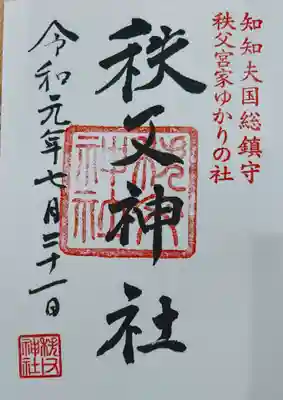 知知夫国総鎮守
秩父宮家ゆかりの社
秩父神社
令和元年七月三十一日
秩父神社
秩父神社